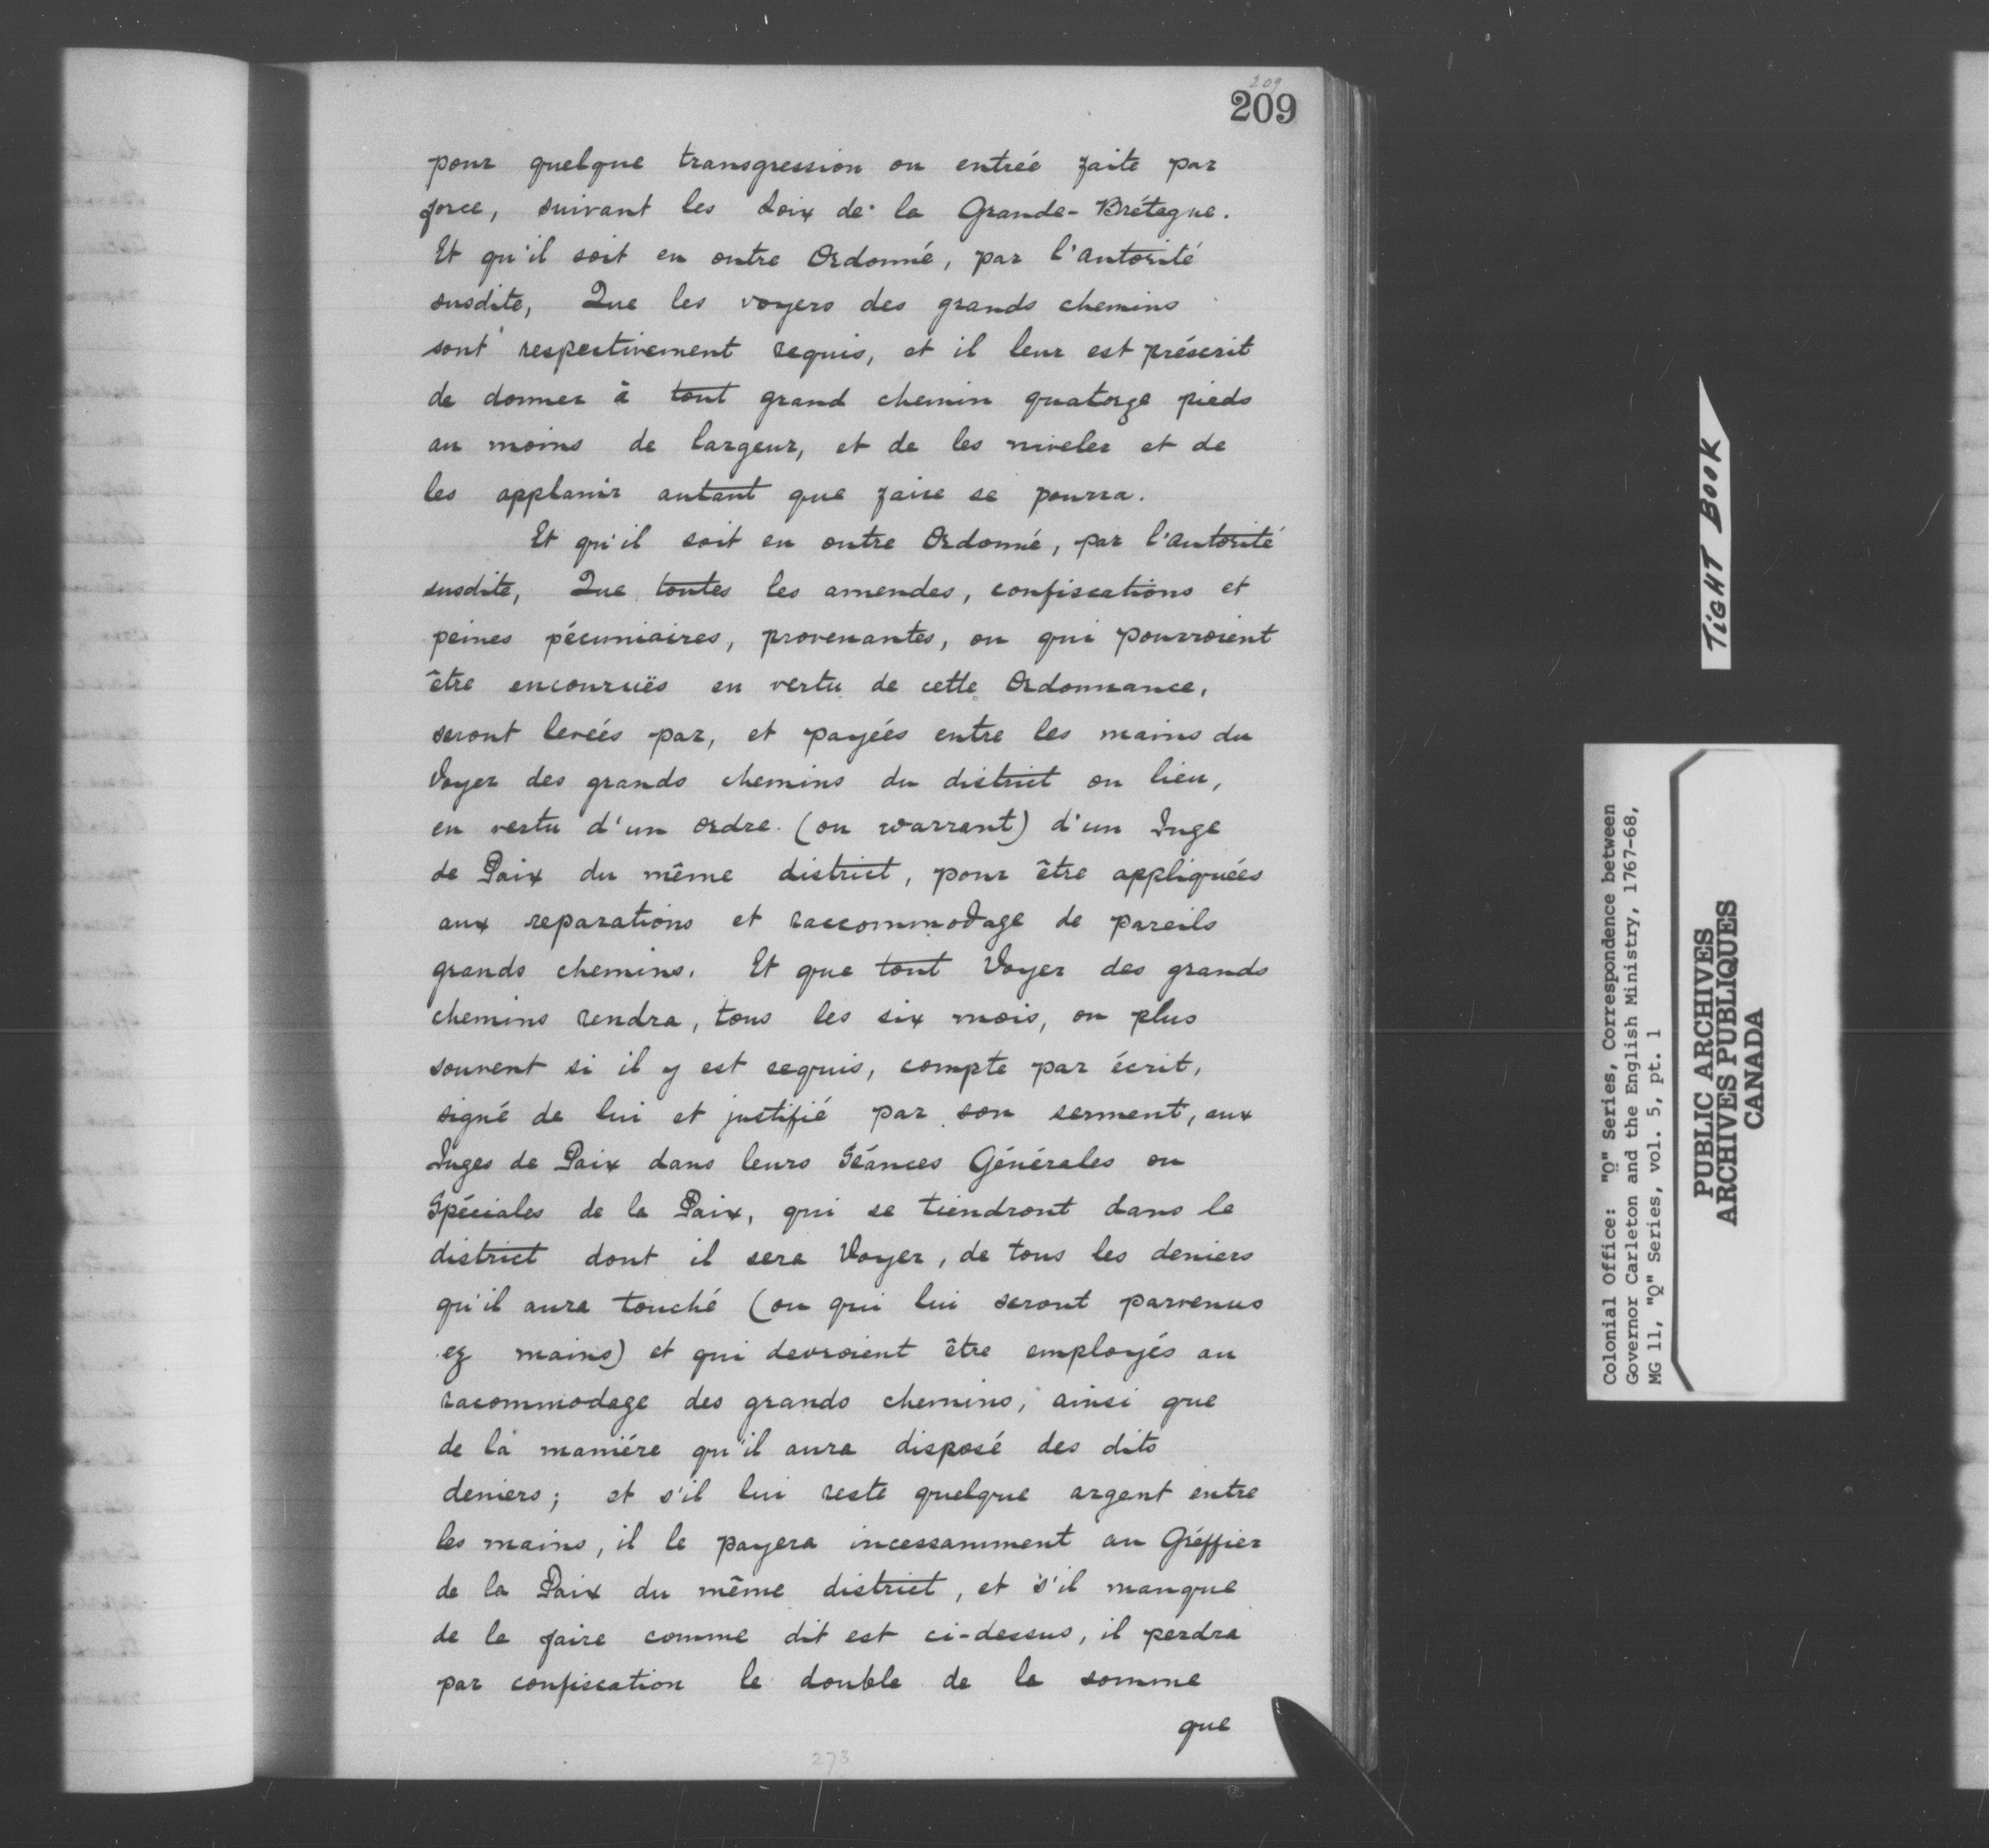 209
209
pour quelque transgression ou entrée faite par
force, suivant les Loix de la Grande-Brétagne.
Et qu'il soit en outre Ordonné, par l'autorité
susdite, Que les voyers des grands chemins
sont respectivement requis, et il leur est préscrit
de donner à tout grand chemin quatorze pieds
au moins de largeur, et de les niveler et de
les applanir autant que faire se pourra.
Et qu'il soit en outre Ordonné, par l'autorité
susdite, Que toutes les amendes, confiscations et
peines pécuniaires, provenantes, ou qui pourroient
être encouruës en vertu de cette Ordonnance,
seront levéés par, et payéés entre les mains du
Voyer des grands chemins du district ou lieu,
en vertu d'un ordre (ou warrant) d'un Juge
de Paix du même district, pour être appliquéés
aux reparations et raccommodage de pareils
grands chemins. Et que tout Voyer des grands
chemins rendra, tous les six mois, ou plus
souvent si il y est requis, compte par écrit,
signé de lui et justifié par son serment, aux
Juges de Paix dans leurs Séances Générales ou
Spéciales de la Paix, qui se tiendront dans le
district dont il sera Voyer, de tous les deniers
qu'il aura touché (ou qui lui seront parvenus
ez mains) et qui devroient être employés au
racommodage des grands chemins, ainsi que
de la maniére qu'il aura disposé des dits
deniers; et s'il lui reste quelque argent entre
les mains, il le payera incessamment au Gréffier
de la Paix du même district, et s'il manque
de le faire comme dit est ci-dessus, il perdra
par confiscation le double de la somme
que
273
TIGHT BOOK
Colonial Office: "Q" Series, Correspondence between
Governor Carleton and the English Ministry, 1767-68,
MG 11, "Q" Series, vol. 5, pt. 1
PUBLIC ARCHIVES
ARCHIVES PUBLIQUES
CANADA